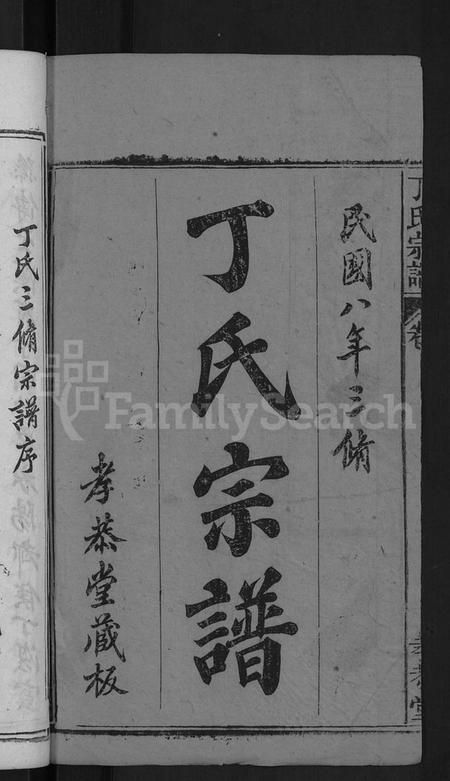 丁氏宗譜
卷
民國八年三脩
丁氏宗譜
孝恭堂藏板
丁氏三脩宗譜序
FamilySearch